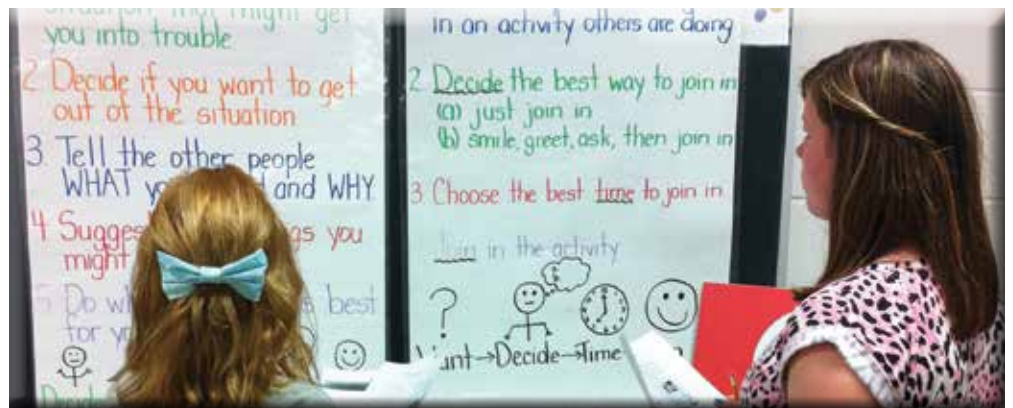 situation that might get
you into trouble
2. Decide if you want to get
out of the situation
3. Tell the other people
WHAT and WHY
4. you
might
5. Do best
for
in an activity others are doing
2. Decide the best way to join in
(a) just join in
(b) smile, greet, ask, then join in
3. Choose the best time to join in
Join in the activity
?
→Decide→Time